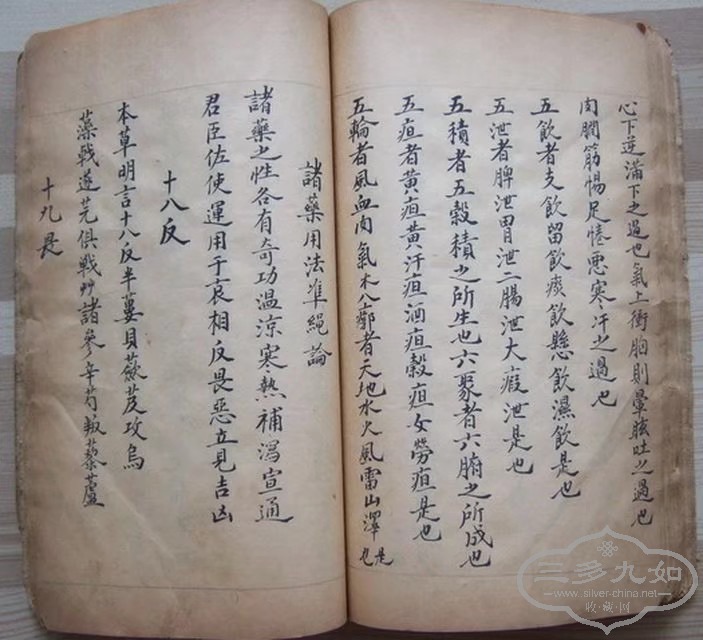 心下逆滿下之過也氣上衝胸則暈眩吐之過也
肉瞤筋惕足惓惡寒汗之過也
五飲者支飲留飲痰飲懸飲濕飲是也
五泄者脾泄胃泄二腸泄大瘕泄是也
五積者五穀積之所生也六聚者六腑之所成也
五疸者黃疸黃汗疸酒疸穀疸女勞疸是也
五輪者風血肉氣木八廓者天地水火風雷山澤是也
諸藥用法準繩論
諸藥之性各有奇功温涼寒熱補瀉宣通
君臣佐使運用于衷相反畏惡立見吉凶
十八反
本草明言十八反半蔞貝蘞芨攻烏
藻戟遂芫俱戰艸諸參辛芍叛藜蘆
十九是
三多九如
www.silver-china.net
收·藏·网